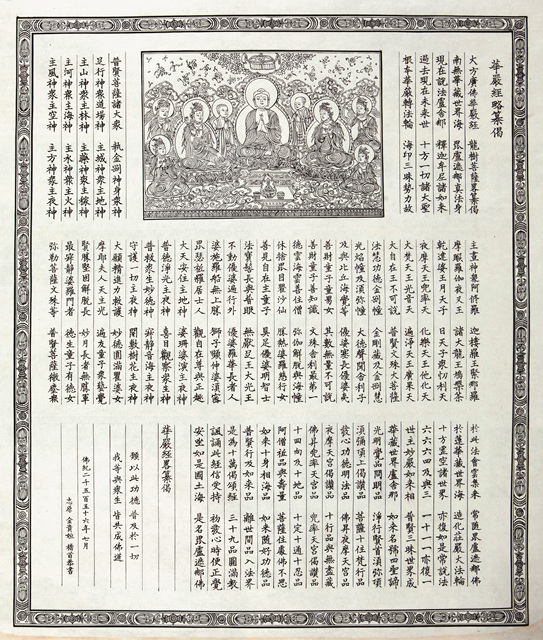 華嚴經略纂偈
大方廣佛華嚴經 龍樹菩薩略纂偈
南無華藏世界海 毘盧遮那真法身
現在說法盧舍那 釋迦牟尼諸如來
過去現在未來世 十方一切諸大聖
根本華嚴轉法輪 海印三昧勢力故
普賢菩薩諸大衆 執金剛神身衆神
足行神衆道場神 主城神衆主地神
主山神衆主林神 主藥神衆主稼神
主河神衆主海神 主水神衆主火神
主風神衆主空神 主方神衆主夜神
主晝神衆阿修羅 迦樓羅王緊那羅
摩睺羅伽夜叉王 諸大龍王鳩槃茶
乾達婆王月天子 日天子衆忉利天
夜摩天王兜率天 化樂天王他化天
大梵天王光音天 遍淨天王廣果天
大自在王不可說 普賢文殊大菩薩
法慧功德金剛幢 金剛藏及金剛慧
光焰幢及須彌幢 大德聲聞舍利子
及與比丘海覺等 優婆塞長優婆夷
善財童子童男女 其數無量不可說
善財童子善知識 文殊舍利最第一
德雲海雲善住僧 彌伽解脫與海幢
休捨毘目瞿沙仙 勝熱婆羅慈行女
善見自在主童子 具足優婆明智士
法寶髻長與普眼 無厭足王大光王
不動優婆遍行外 優婆羅華長者人
婆施羅船無上勝 獅子頻伸婆須蜜
毘瑟祗羅居士人 觀自在尊與正趣
大天安住主地神 婆珊婆演主夜神
普德淨光主夜神 喜目觀察衆生神
普救衆生妙德神 寂靜音海主夜神
守護一切主夜神 開敷樹花主夜神
大願精進力救護 妙德圓滿瞿婆女
摩耶夫人天主光 遍友童子衆藝覺
賢勝堅固解脫長 妙月長者無勝軍
最寂靜婆羅門者 德生童子有德女
彌勒菩薩文殊等 普賢菩薩微塵衆
於此法會雲集來 常隨毘盧遮那佛
於蓮華藏世界海 造化莊嚴大法輪
十方虛空諸世界 亦復如是常說法
六六六四及與三 一十一一亦復一
世主妙嚴如來相 普賢三昧世界成
華藏世界盧舍那 如來名號四聖諦
光明覺品問明品 淨行賢首須彌頂
須彌頂上偈讚品 菩薩十住梵行品
發心功德明法品 佛昇夜摩天宮品
夜摩天宮偈讚品 十行品與無盡藏
佛昇兜率天宮品 兜率天宮偈讚品
十回向及十地品 十定十通十忍品
阿僧祇品與壽量 菩薩住處佛不思
如來十身相海品 如來隨好功德品
普賢行及如來出 離世間品入法界
是為十萬偈頌經 三十九品圓滿教
諷誦此經信受持 初發心時便正覺
安坐如是國土海 是名毘盧遮那佛
華嚴經略纂偈
願以此功德 普及於一切
我等與衆生 皆共成佛道
佛紀二千五百五十六年七月
金貴姬 稽首恭書